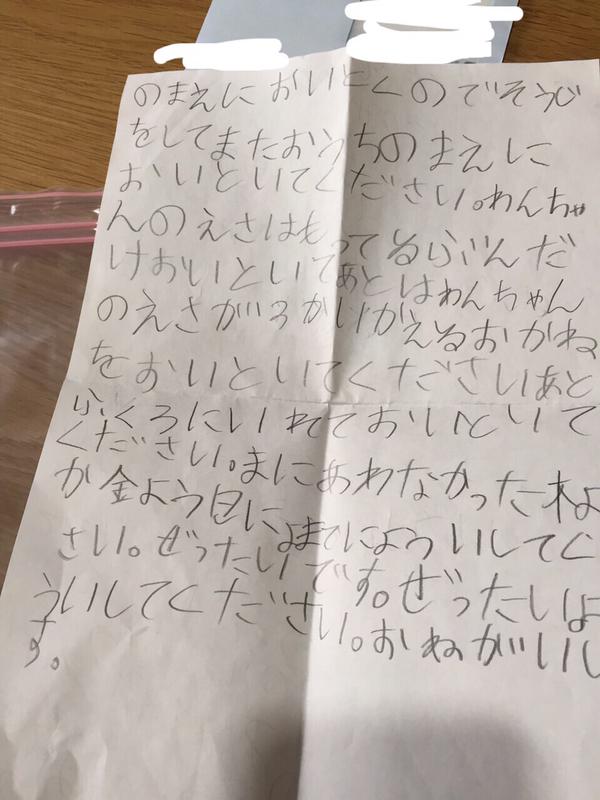 のまえにおいとくのでそうじ
をしてまたおうちのまえに
おいといてください。わんちゃ
んのえさはもってるぶんだ
けおいといてあとはわんちゃん
のえさがろかいかえるおかね
をおいといてくださいあと
ふくろにいれておいといて
ください。まにあわなかったよ
か金よう日にまでによういしてく
さい。ぜったいです。ぜったいよ
ういしてください。おねがいし
ます。